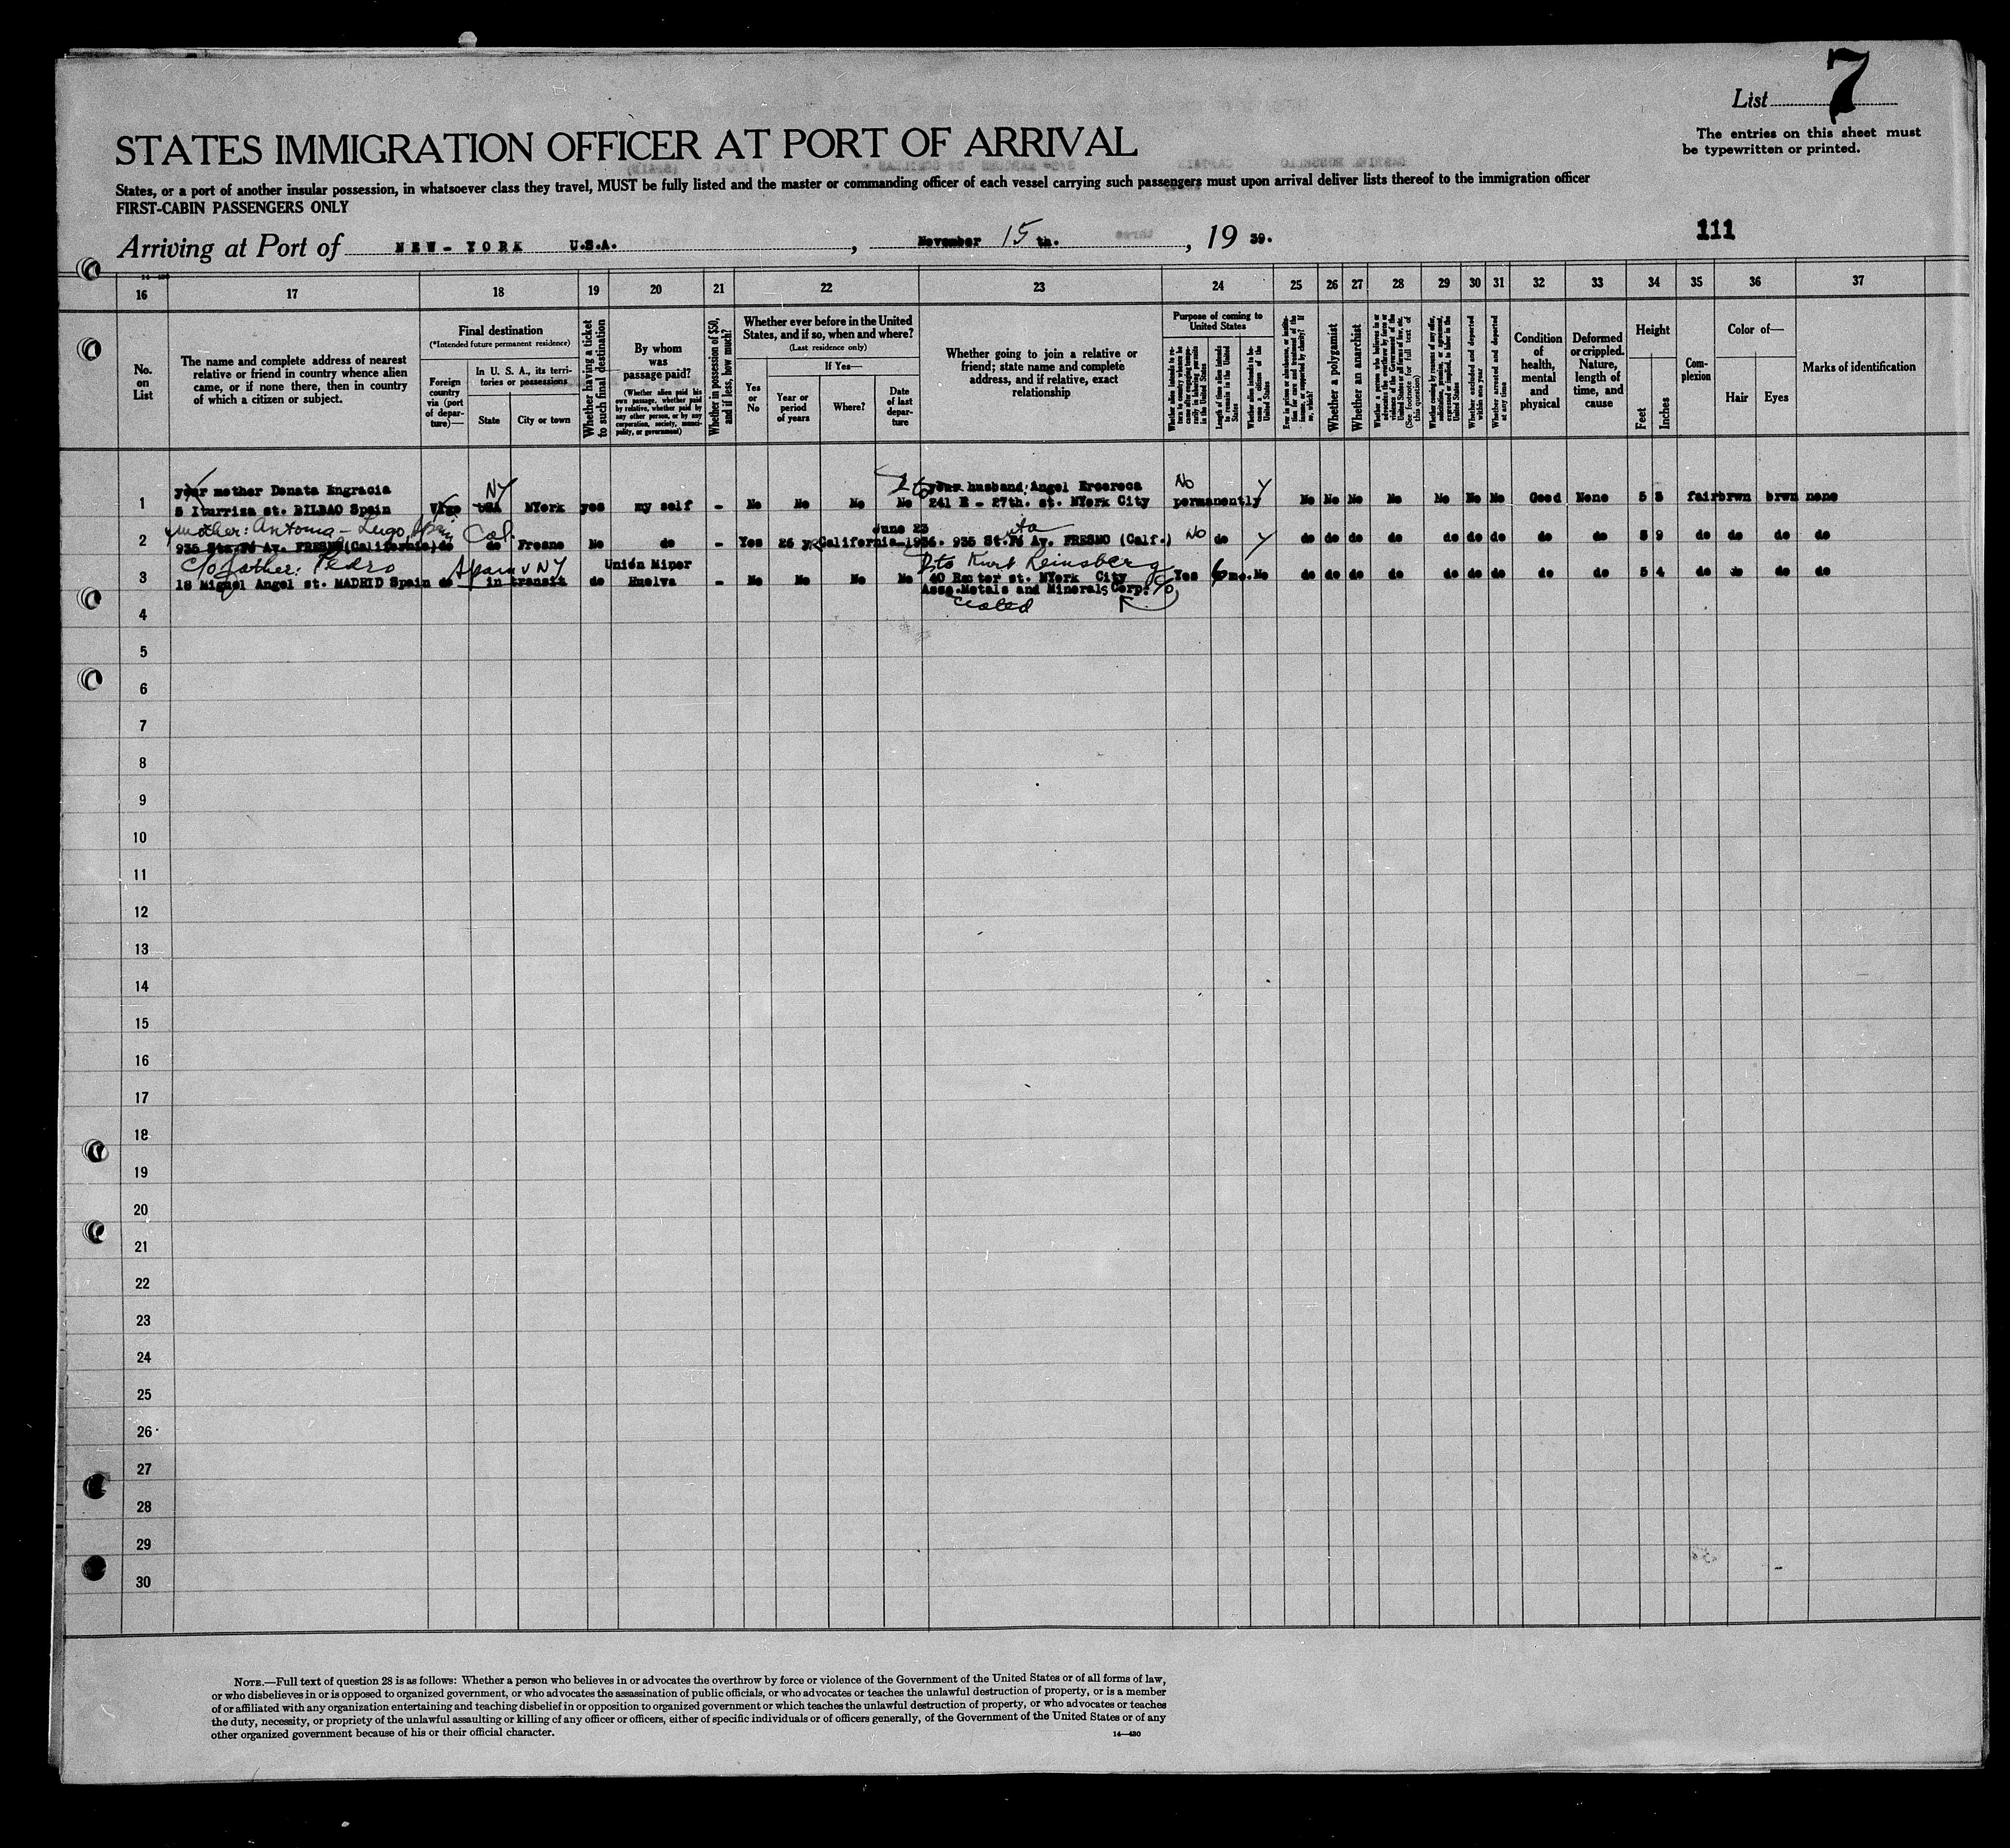 List 7
STATES IMMIGRATION OFFICER AT PORT OF ARRIVAL
The entries on this sheet must
be typewritten or printed.
States, or a port of another insular possession, in whatsoever class they travel, MUST be fully listed and the master or commanding officer of each vessel carrying such passengers must upon arrival deliver lists thereof to the immigration officer
FIRST-CABIN PASSENGERS ONLY
Arriving at Port of NEW-YORK U.S.A. , November 15 th. , 19 39.
111
16 17 18 19 20 21 22 23 24 25 26 27 28 29 30 31 32 33 34 35 36 37
No. on List
The name and complete address of nearest relative or friend in country whence alien came, or if none there, then in country of which a citizen or subject.
Final destination
(*Intended future permanent residence)
Foreign country via (port of departure)—
In U. S. A., its territories or possessions
State
City or town
Whether having a ticket to such final destination
By whom was passage paid?
(Whether alien paid his own passage, whether paid by relative, whether paid by any other person, or by any corporation, society, municipality, or government)
Whether in possession of $50, and if less, how much?
Whether ever before in the United States, and if so, when and where?
(Last residence only)
Yes or No
If Yes—
Year or period of years
Where?
Date of last departure
Whether going to join a relative or friend; state name and complete address, and if relative, exact relationship
Purpose of coming to United States
Length of time alien intends to remain in the United States
Whether alien intends to become a citizen of the United States
Whether a polygamist
Whether an anarchist
(See footnote for full text of this question)
Whether excluded and deported within one year
Whether arrested and deported at any time
Condition of health, mental and physical
Deformed or crippled. Nature, length of time, and cause
Height
Feet
Inches
Complexion
Color of—
Hair
Eyes
Marks of identification
1 your mother Donata Engracia
5 Iturriza st. BILBAO Spain Vigo USA NY NYork yes my self - No No No No
your husband: Angel Ercoreca
241 E - 27th. st. NYork City No permanently y No No No No No No No Good None 5 5 fair brwn brwn none
2 mother: Antonia - Lugo, Spain
935 Sta.Fé Av. FRESNO (California) do do Cal. Fresno No do - Yes 26 y California June 23 1936. 935 Sta Fé Av. FRESNO (Calf.) No do y do do do do do do do do do 5 9 do do do do
3 c/o father: Pedro
18 Miguel Angel st. MADRID Spain do Spain v NY in transit do Unión Miner Huelva - No No No No
to Kurt Reinsberg
40 Rector st. NYork City Yes 6 mo. No do do do do do do do do do 5 4 do do do do
Asso. Metals and Minerals Corp. c/o
ciated
4
5
6
7
8
9
10
11
12
13
14
15
16
17
18
19
20
21
22
23
24
25
26
27
28
29
30
NOTE.—Full text of question 28 is as follows: Whether a person who believes in or advocates the overthrow by force or violence of the Government of the United States or of all forms of law,
or who disbelieves in or is opposed to organized government, or who advocates the assassination of public officials, or who advocates or teaches the unlawful destruction of property, or is a member
of or affiliated with any organization entertaining and teaching disbelief in or opposition to organized government or which teaches the unlawful destruction of property, or who advocates or teaches
the duty, necessity, or propriety of the unlawful assaulting or killing of any officer or officers, either of specific individuals or of officers generally, of the Government of the United States or of any
other organized government because of his or their official character.
14—430